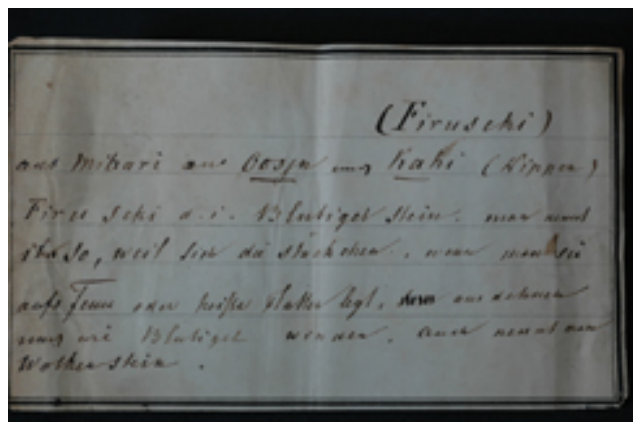 (Firuschi)
aus Mikari aus Oosju und Kahi (Nippon)
Firu schi d. i. Blutigel stein. man nennt
ihn so, weil sich die stückchen, wenn man sie
aufs Feuer oder heiße platten legt, ausdehnen
und wie Blutigel winden. auch nennt man
Wolkenstein.